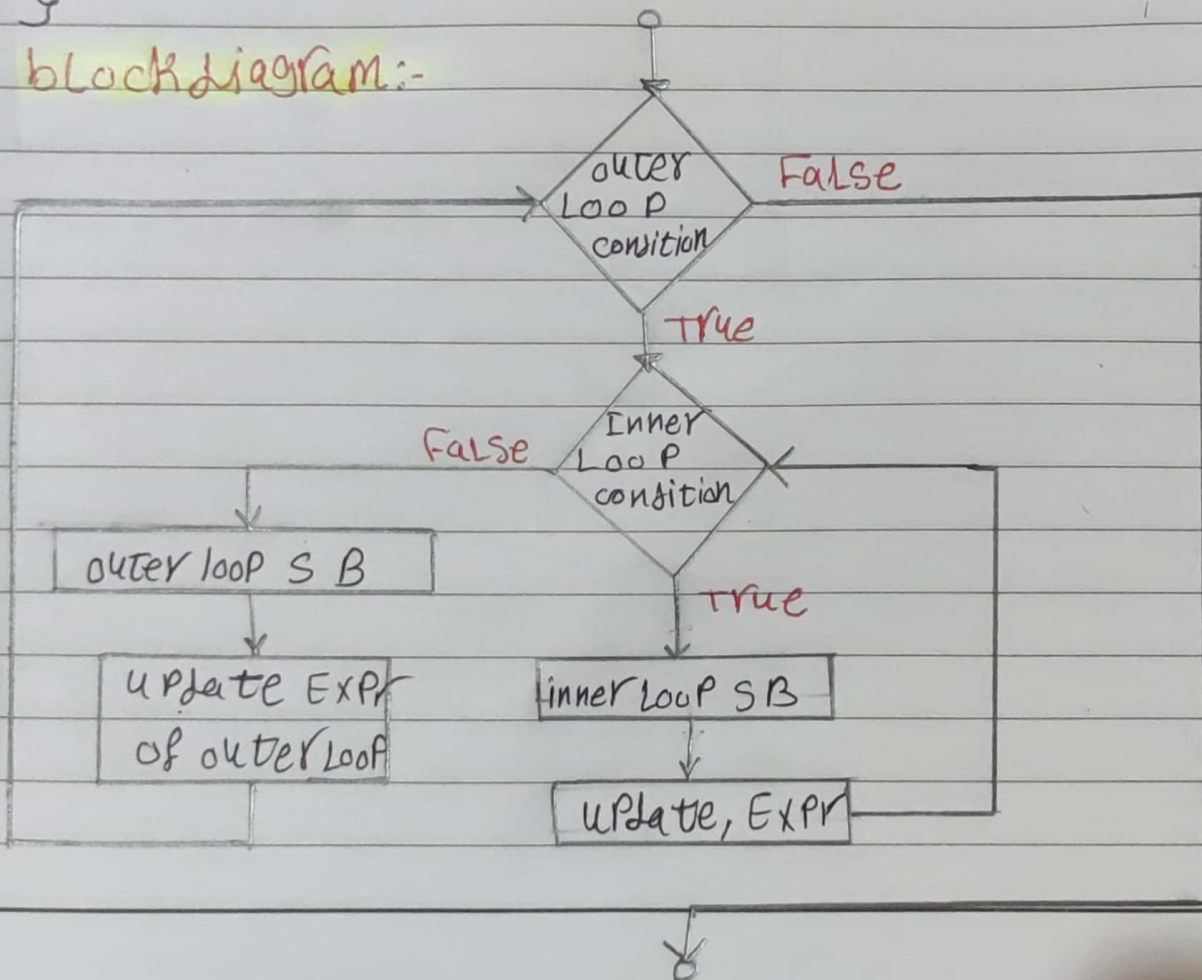 blockdiagram:-
outer
Loop
condition
False
True
Inner
Loop
condition
False
outer loop S B
True
update Expr
of outer Loop
inner Loop S B
update, Expr